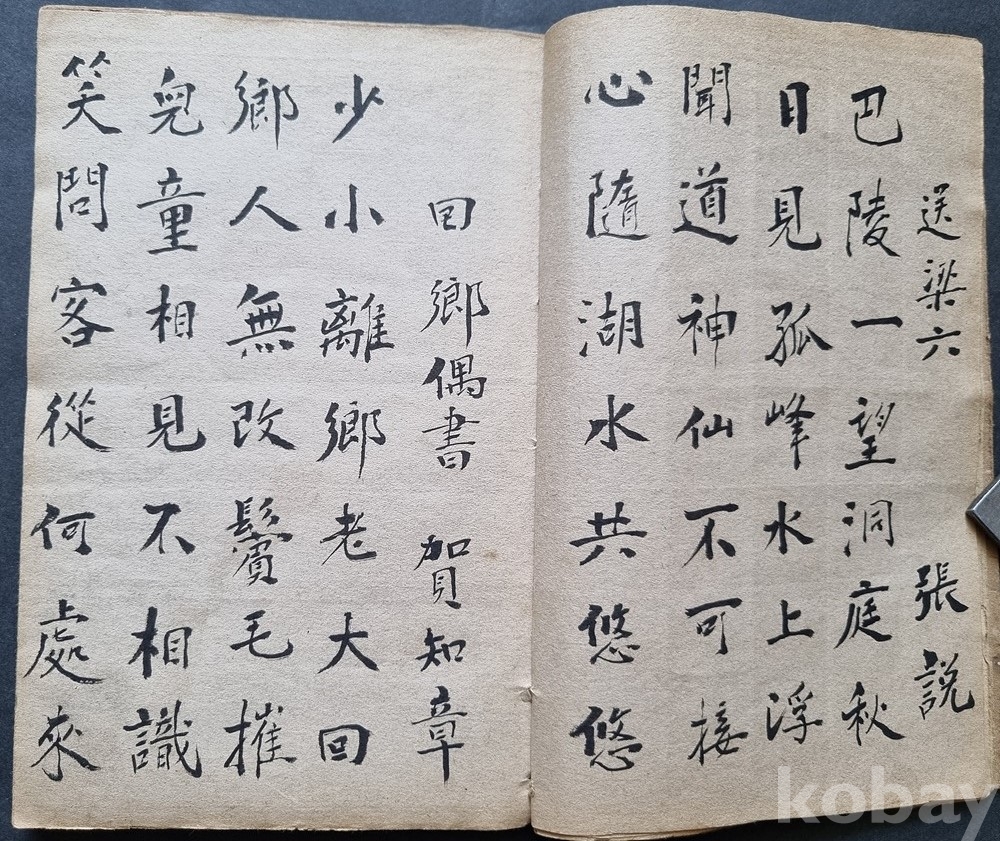 送梁六 張説
巴陵一望洞庭秋
日見孤峰水上浮
聞道神仙不可接
心隨湖水共悠悠
回鄉偶書 賀知章
少小離鄉老大回
鄉人無改鬢毛摧
兒童相見不相識
笑問客從何處來
kobay